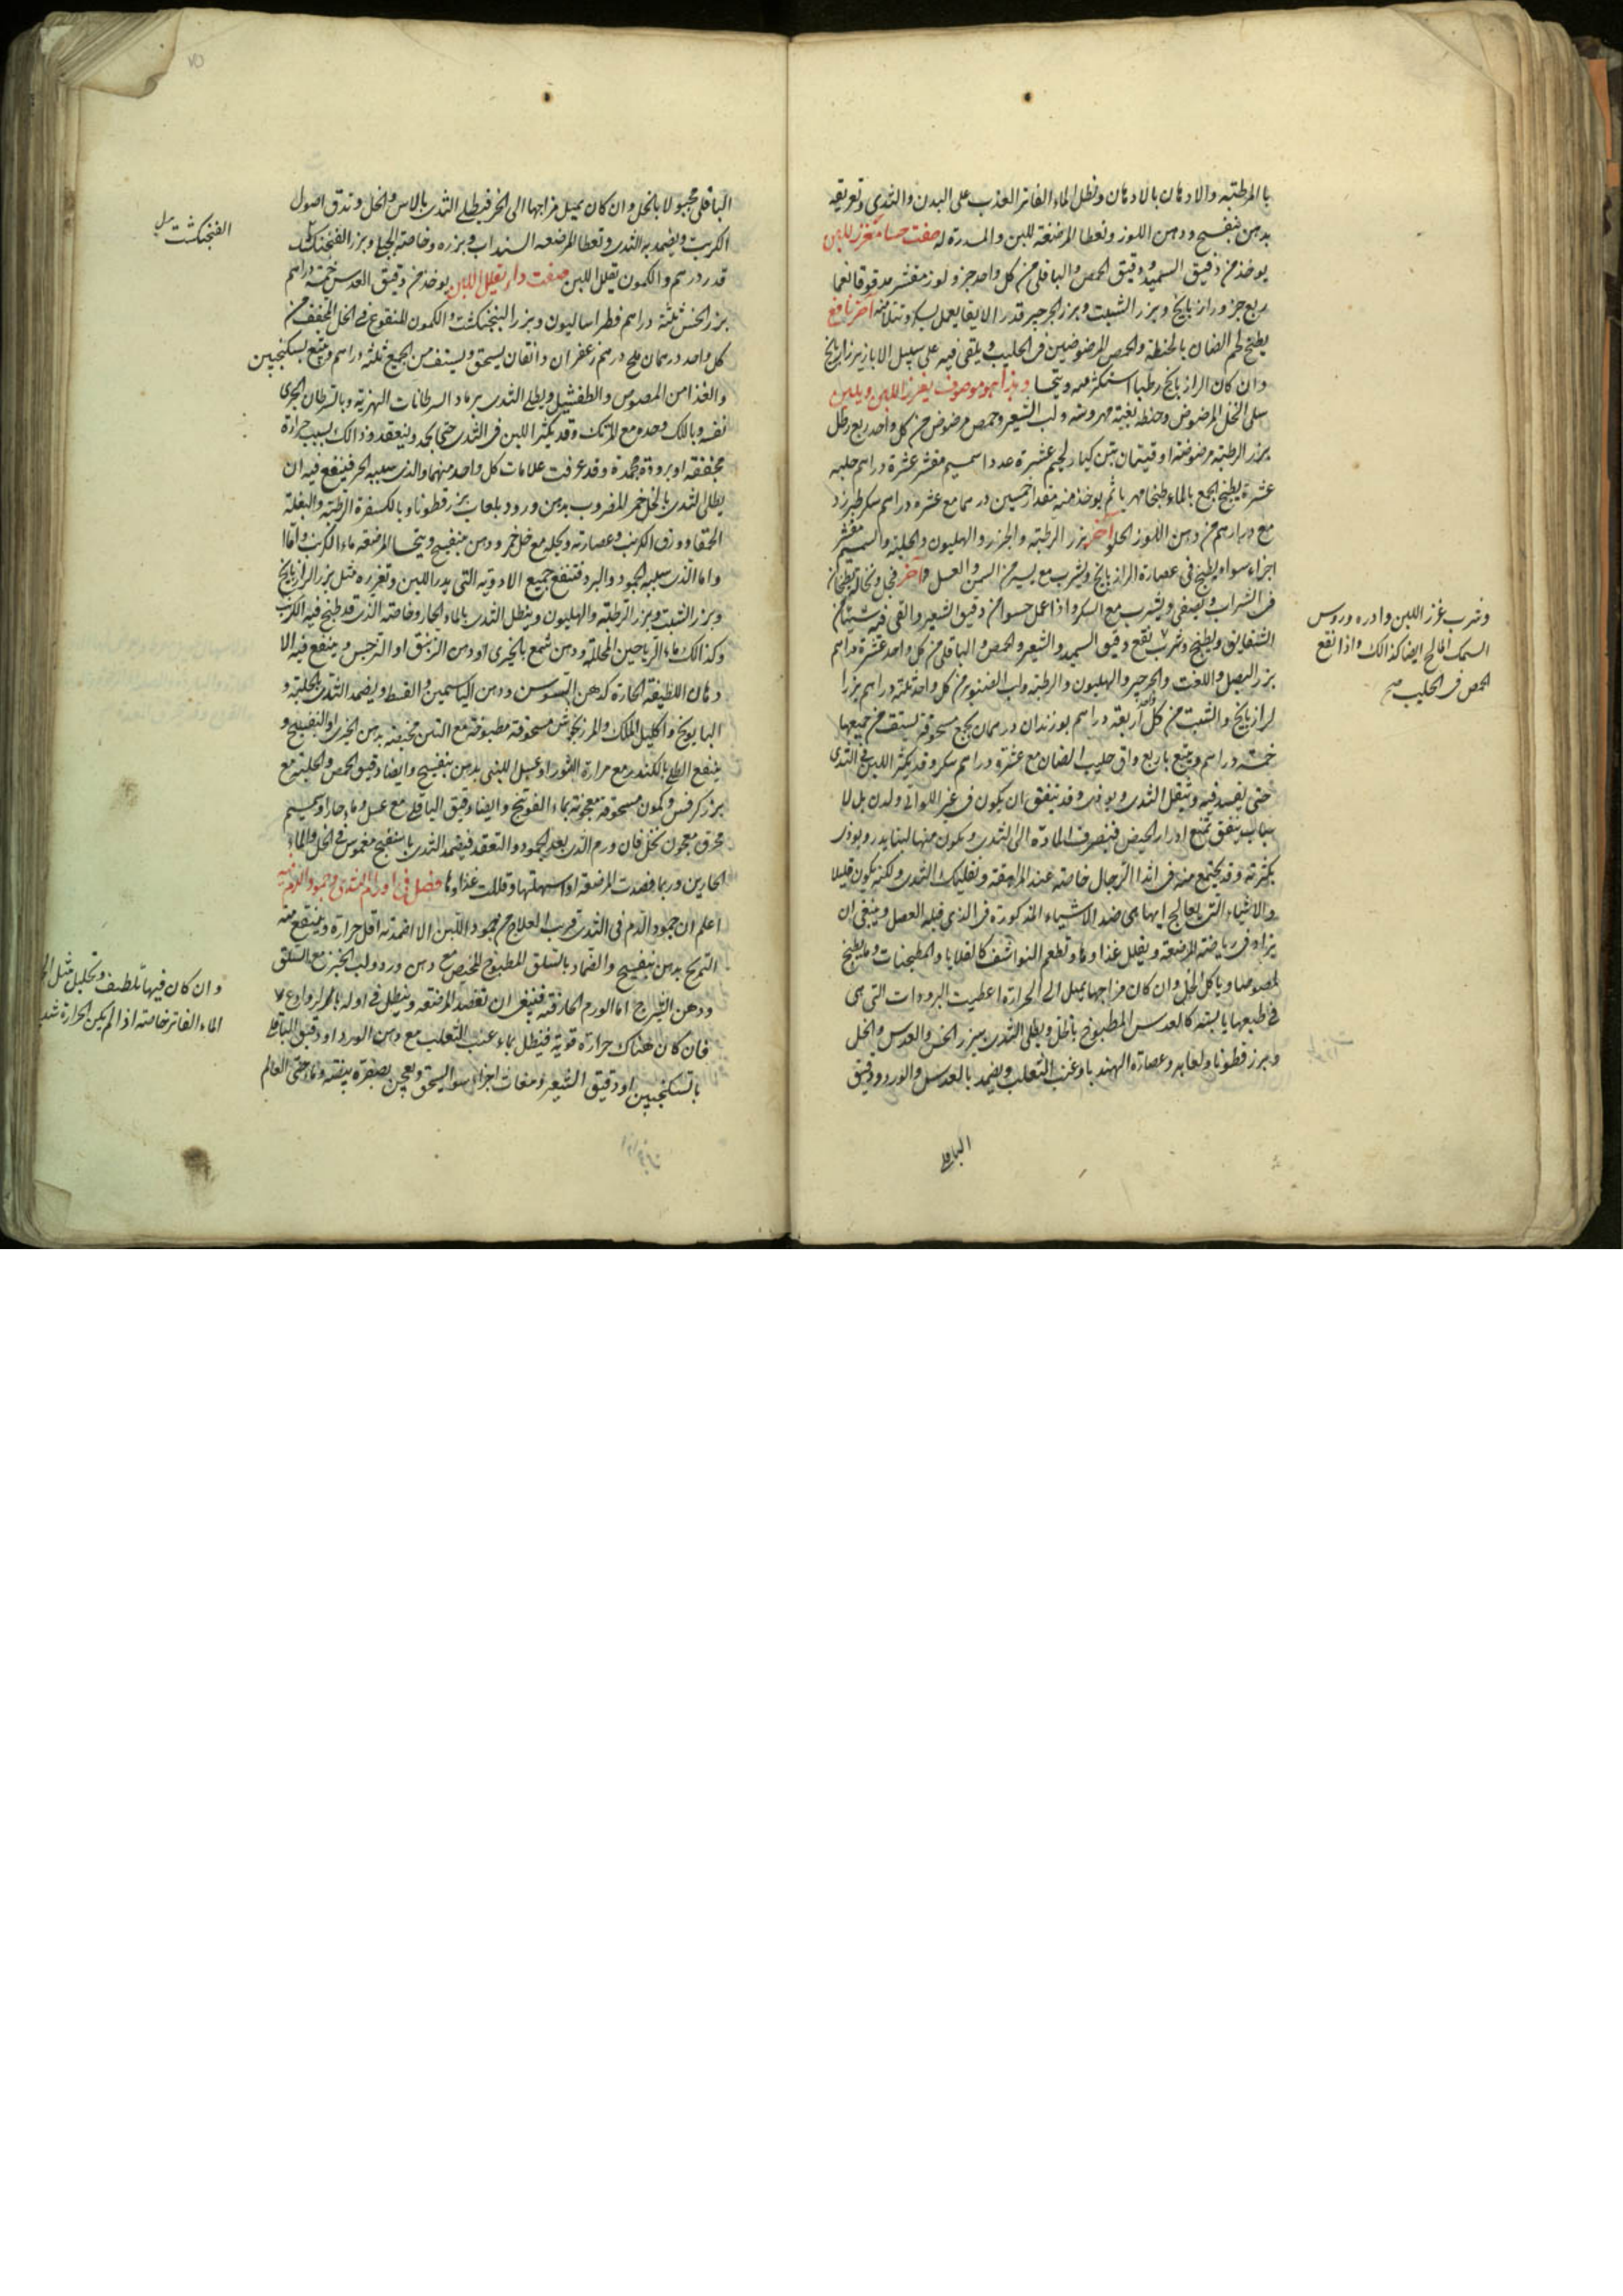 بالمرطبه والادهان بالادهان ونطل الماء الفاتر العذب على البدن والثدى وتعريقه
بدهن بنفسج ودهن اللوز وتعطا المرضعة للبن والمدرة له صفت حسا مغزر للبن
يوخذ من دقيق السميد ودقيق الحمص والباقلى من كل واحد جزو لوز مقشر مدقوقا نعما
ربع جزو رازيانج وبزر الشبت وبزر الجرجير قدر الابقا يعمل بسكر وتناول منه اخر نافع
يطبخ لحم الضان بالحنطة والحمص المرضوضين فى الحليب ويلقى فيه على سبيل الابازير بزر رازيانج
وان كان الرازيانج رطبا استكثر منه ويتحسا وهذا هو موصوف يغزر اللبن ويلين
على الخل المرضوض وحنطة مهروسة ولب الشعير وحمص مرضوض من كل واحد ربع رطل
بزر الرطبة مرضوضة اوقيتان تين كبار لحيم عشرة عددا سمسم مقشر عشرة دراهم حلبه
عشرة يطبخ الجمع بالماء طبخا مهريا ثم يوخذ منه مقدار خمسين درهما مع عشرة دراهم سكر طبرزد
مع دراهم من دهن اللوز الحلو اخر بزر الرطبة والجزر والهليون والحلبة والسمسم مقشر
اجزاء سواء يطبخ فى عصارة الرازيانج ويشرب مع يسير من السمن والعسل واخر فجل ونخالة يطبخان
فى الشراب ويصفى ويشرب مع السكر واذا عمل حسوا من دقيق الشعير والقى فيه شيئا من
الشقايق ويطبخ وشرب نفع دقيق السميد والشعير والحمص والباقلى من كل واحد عشرة دراهم
بزر البصل واللفت والجرجير والهليون والرطبة ولب الصنوبر من كل واحد ثلثة دراهم بزر ا
لرازيانج والشبت من كل واحد اربعة دراهم بوزندان درهمان يجمع مسحوقة يستف من جميعها
خمسة دراهم ويتبع باربع واق حليب الضان مع عشرة دراهم سكر وقد يكثر اللبن فى الثدى
حتى يفسد فيه وتثقل الثدى ويوذى وقد يتفق ان يكون فى غير اللواتى ولدن بل لا
سباب يتفق تمنع ادرار الحيض فينصرف المادة الى الثدى ويكون منها لبنا يدر ويوذى
بكثرته وقد يجتمع منه فى اثدا الرجال خاصة عند المراهقة وتفليك الثدى ولكنه يكون قليلا
والاشياء التى يعالج بها هى ضد الاشياء المذكورة فى الذى قبله الفصل وينبغى ان
يزاد فى رياضة المرضعة ويقلل غذاوها وتطعم النواشف كالقلايا والمطجنات وما يطبخ
لمصوصا وياكل الخل وان كان مزاجها يميل الى الحرارة اعطيت البرودات التى هى
فى طبعها يابسة كالعدس المطبوخ بالخل ويطلى الثدى ببزر الخس والعدس والخل
وبزر قطونا ولعابه وعصارة الهندبا وعنب الثعلب ويضمد بالعدس والورد ودقيق
الباقلى
وشرب غزر اللبن وادره وروس
السمك المالح ايضا كذالك واذا نقع
الحمص فى الحليب صح
الباقلى مجبولا بالخل وان كان يميل مزاجها الى الحر فيطلى الثدى بالاس والخل وتدق اصول
الكرنب ويضمد به الثدى وتعطا المرضعه السنداب وبزره وخاصة الجبلى وبزر الفنجنكشت
قدر درهم والكمون يقلل اللبن صفت دواء يقلل اللبن يوخذ من دقيق العدس خمسة دراهم
بزر الخس ثلثة دراهم فطراساليون وبزر البنجنكشت والكمون المنقوع فى الخل المجفف من
كل واحد درهمان ملح درهم زعفران دانقان يسحق ويستف من الجميع ثلثه دراهم ويتبع بسكنجبين
والغذا من المصوص والطفشيل ويطلى الثدى برماد السرطانات النهرية وبالسرطان البحرى
نفسه وبالك وحده مع المرتك وقد يكثر اللبن فى الثدى حتى يجمد وينعقد وذالك بسبب حرارة
مجففة او برودة مجمدة وقد عرفت علامات كل واحد منهما والذى سببه الحر فينفع فيه ان
يطلى الثدى بالخل خمر المضروب بدهن ورد وبلعاب بزر قطونا وبالكسفرة الرطبة والبقلة
الحمقا وورق الكرنب وعصارته وبجله مع خل خمر ودهن بنفسج ويتحسا المرضعة ماء الكرنب واما ا
واما الذى سببه الجمود والبرد فتنفع جميع الادوية التى يدر اللبن وتغزره مثل بزر الرازيانج
وبزر الشبت وبزر الرطبة والهليون وينطل الثدى بالماء الحار وخاصة الذى قد طبخ فيه الكرنب
وكذالك ماء الرياحين المحللة ودهن شمع بالخيرى او دهن الزنبق او النرجس وينفع فيه الا
دهان اللطيفة الحارة كدهن السوسن ودهن الياسمين والقسط ويضمد الثدى بالحلبة و
البابونج واكليل الملك والمرزنجوش مسحوقة مطبوخة مع التين مخبصة بدهن الخيرى او البنفسج و
ينفع الطلى بالكندر مع مرارة الثور او عسل اللبنى بدهن بنفسج وايضا دقيق الحمص والحلبة مع
بزر كرفس وكمون مسحوقة معجونة بماء الفوتنج وايضا دقيق الباقلى مع عسل وماء حار او سمسم
محرق معجون بخل فان ورم الثدى بعد الجمود والتعقد فيضمد الثدى باسفنج مغموس فى الخل والماء
الحارين وربما فصدت المرضعة او سهلتها وقللت غذاوها فصل فى اورام الثدى وجمود الدم فيه
اعلم ان جمود الدم فى الثدى قريب العلاج من جمود اللبن الا ان اضمدته اقل حرارة وينتفع منه
التمريخ بدهن بنفسج والضماد بالسلق المطبوخ المخبص مع دهن ورد ولب الخبز مع السلق
ودهن الشيرج اما الورم الحار فيه فينبغى ان تفصد المرضعة وينطل فى اوله بالروادع
فان كان هناك حرارة قوية فينطل بماء عنب الثعلب مع دهن الورد او دقيق الباقلى
بالسكنجبين او دقيق الشعير ومغاث اجزاء سوا يسحق ويعجن بصفرة بيضه وماء حى العالم
الفنجنكشت
وان كان فيها تلطيف وتحليل مثل
الماء الفاتر خاصة اذا لم يكن الحرارة شد